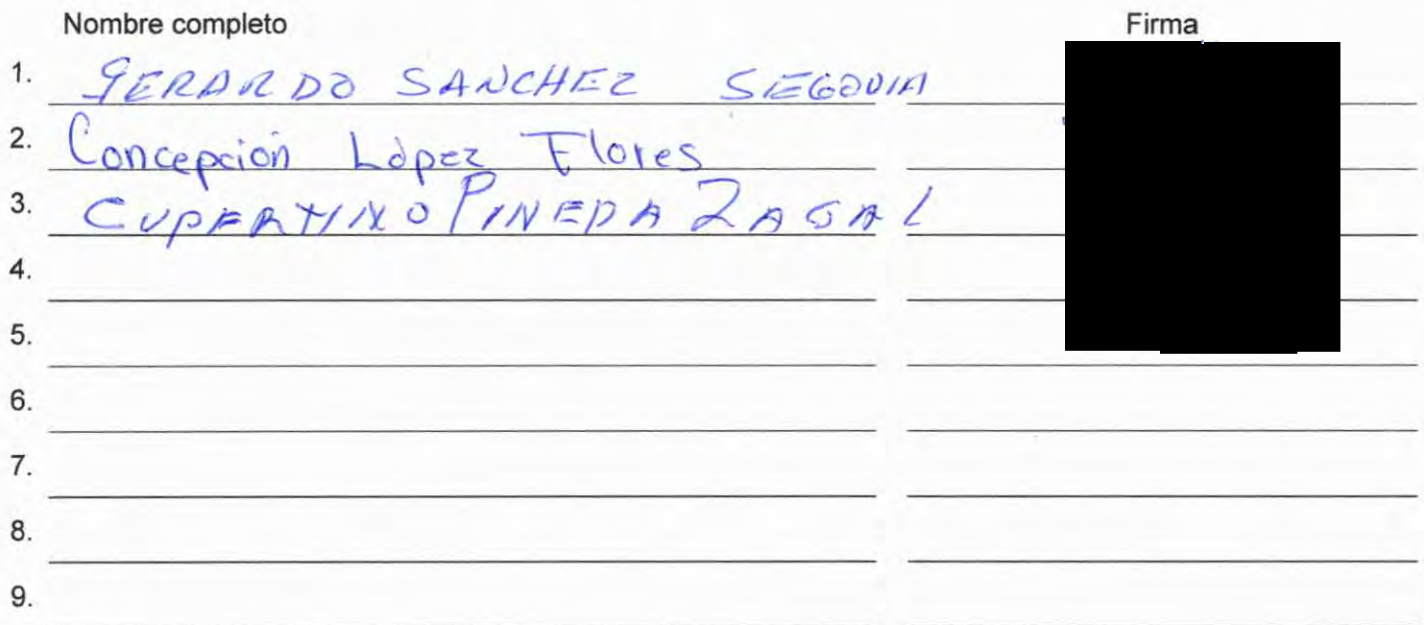 Nombre completo Firma
1. GERARDO SANCHEZ SEGOVIA
2. Concepción López Flores
3. CUPERTINO PINEDA ZAGAL
4.
5.
6.
7.
8.
9.